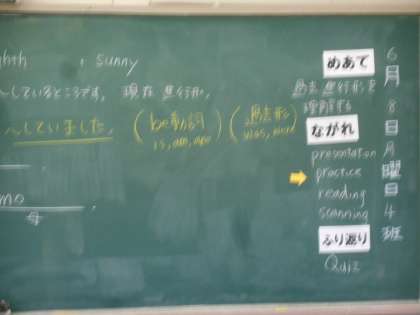 hth , sunny
〜しているところです。 現在 進行形。
〜していました。 (be動詞 is, am, are) (過去形 was, were)
mo
母
めあて
過去進行形を
理解する
ながれ
presentation
practice
reading
scanning
ふり返り
Quiz
6月8日月曜日4班